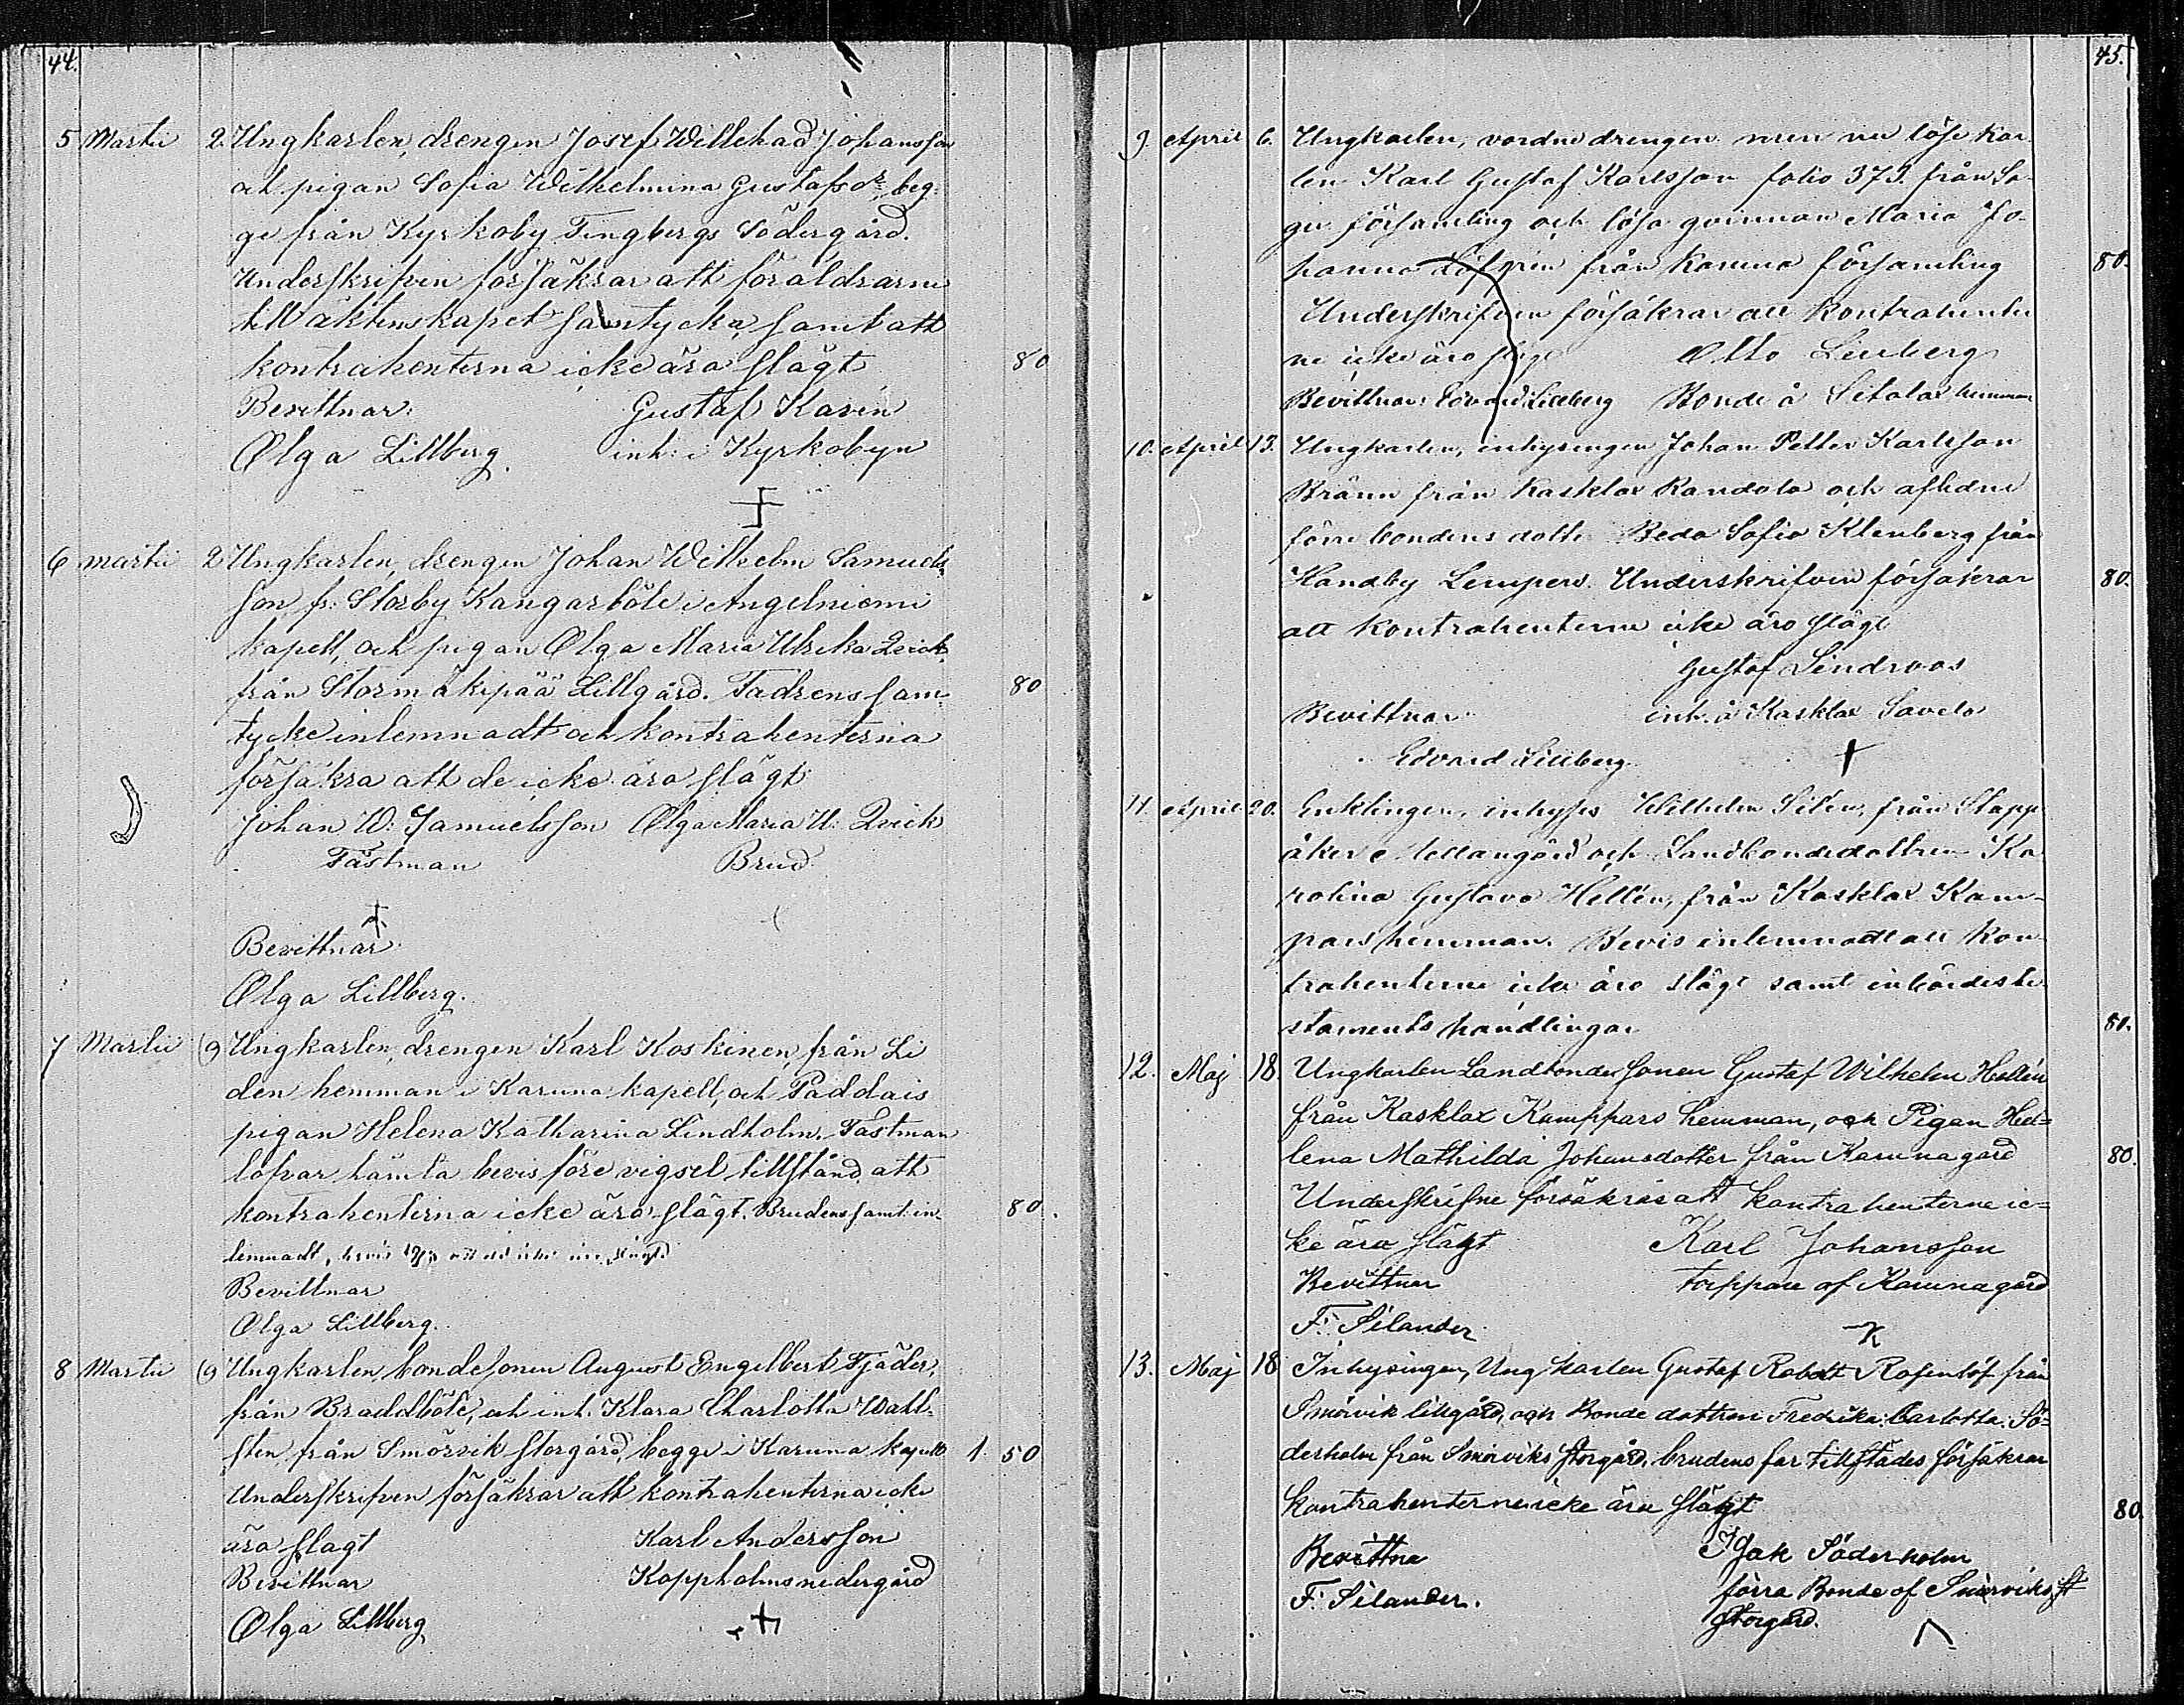 44.
5 Martii 2. Ungkarlen, drengen Josef Willehad Johansson
och pigan Sofia Wilhelmina Gustafsdr. beg-
ge från Kyrkoby Tengbergs Södergård.
Underskrifven försäkrar att föräldrarne
till äktenskapet samtycka samt att
kontrahenterna icke äro slägt 80
Bevittnar: Gustaf Kavén
Olga Lillberg. inh: i Kyrkobyn
6 martii 2 Ungkarlen, drengen Johan Wilhelm Samuels-
son fr. Storby Kangarböle i Angelniemi
kapell, och pigan Olga Maria Ulrika Qvick,
från Stormäkipää Lillgård. Fadrens sam- 80
tycke inlemnadt och kontrahenterna
försäkra att de icke äro slägt.
Johan W: Samuelsson Olga Maria U: Qvick
Fästman Brud
Bevittnar
Olga Lillberg.
7 Martii (9) Ungkarlen, drengen Karl Koskinen, från Li
den hemman i Karuna kapell, och Paddais
pigan Helena Katharina Lindholm. Fästman
lofvar hämta bevis före vigsel tillstånd, att
kontrahenterna icke äro slägt. Brudens samt. in- 80.
lemnadt, bevis att de icke äro slägt.
Bevittnar
Olga Lillberg.
8 Martii (9) Ungkarlen, bondesonen August Engelbert Fjäder,
från Braddböle, och inh. Klara Charlotta Wahl-
sten från Smörvik storgård, begge i Karuna kapell 1. 50
Underskrifven försäkrar att kontrahenterna icke
äro slägt Karl Andersson
Bevittnar Koppholms nedergård
Olga Lillberg
45.
9. April 6. Ungkarlen, vordne drengen men nu löse kar
len Karl Gustaf Karlsson folio 373. från Sa-
gu församling och lösa qvinnan Maria Jo-
hanna Löfgrén från Karuna församling 80.
Underskrifven försäkrar att kontrahenter
ne icke äro slägt Otto Linberg
Bevittnar: Edvard Lillberg Bonde å Sitolax hemman
10. April 13. Ungkarlen, inhysingen Johan Petter Karlsson
Bränn från Kasklax Randola och aflidne
förre bondens dotter Beda Sofia Klenberg från
Handby Lempers. Underskrifven försäkrar 80.
att kontrahenterne icke äro slägt
Gustaf Lindroos
Bevittnar inh. å Kasklax Savelo
Edvard Lillberg
11. April 20. Enklingen, inhyses Wilhelm Silén, från Stapp
åker Mellangård och Landbondedottren Ka
rolina Gustava Hellén, från Kasklax Kam-
pars hemman. Bevis inlemnadt att kon
trahenterne icke äro slägt samt inbördes te
staments handlingar 80.
12. Maj 18. Ungkarlen Landbondes sonen Gustaf Wilhelm Hellén
från Kasklax Kamppars hemman, och Pigan Hel=
lena Mathilda Johansdotter från Karuna gård 80.
Underskrifne försäkras att kontrahenterne ic=
ke äro slägt Karl Johansson
Bevittnar torppare af Karuna gård
F. Silander
13. Maj 18 Inhysingen, Ungkarlen Gustaf Robert Rosenlöf från
Smörvik lillgård, och Bonde dottren Fredrika Carlotta Sö=
derholm från Smörviks storgård, brudens far tillstädes försäkrar
kontrahenterne icke äro slägt 80.
Bevittna Isak Söderholm
F. Silander. förra Bonde af Smörviks
storgård.